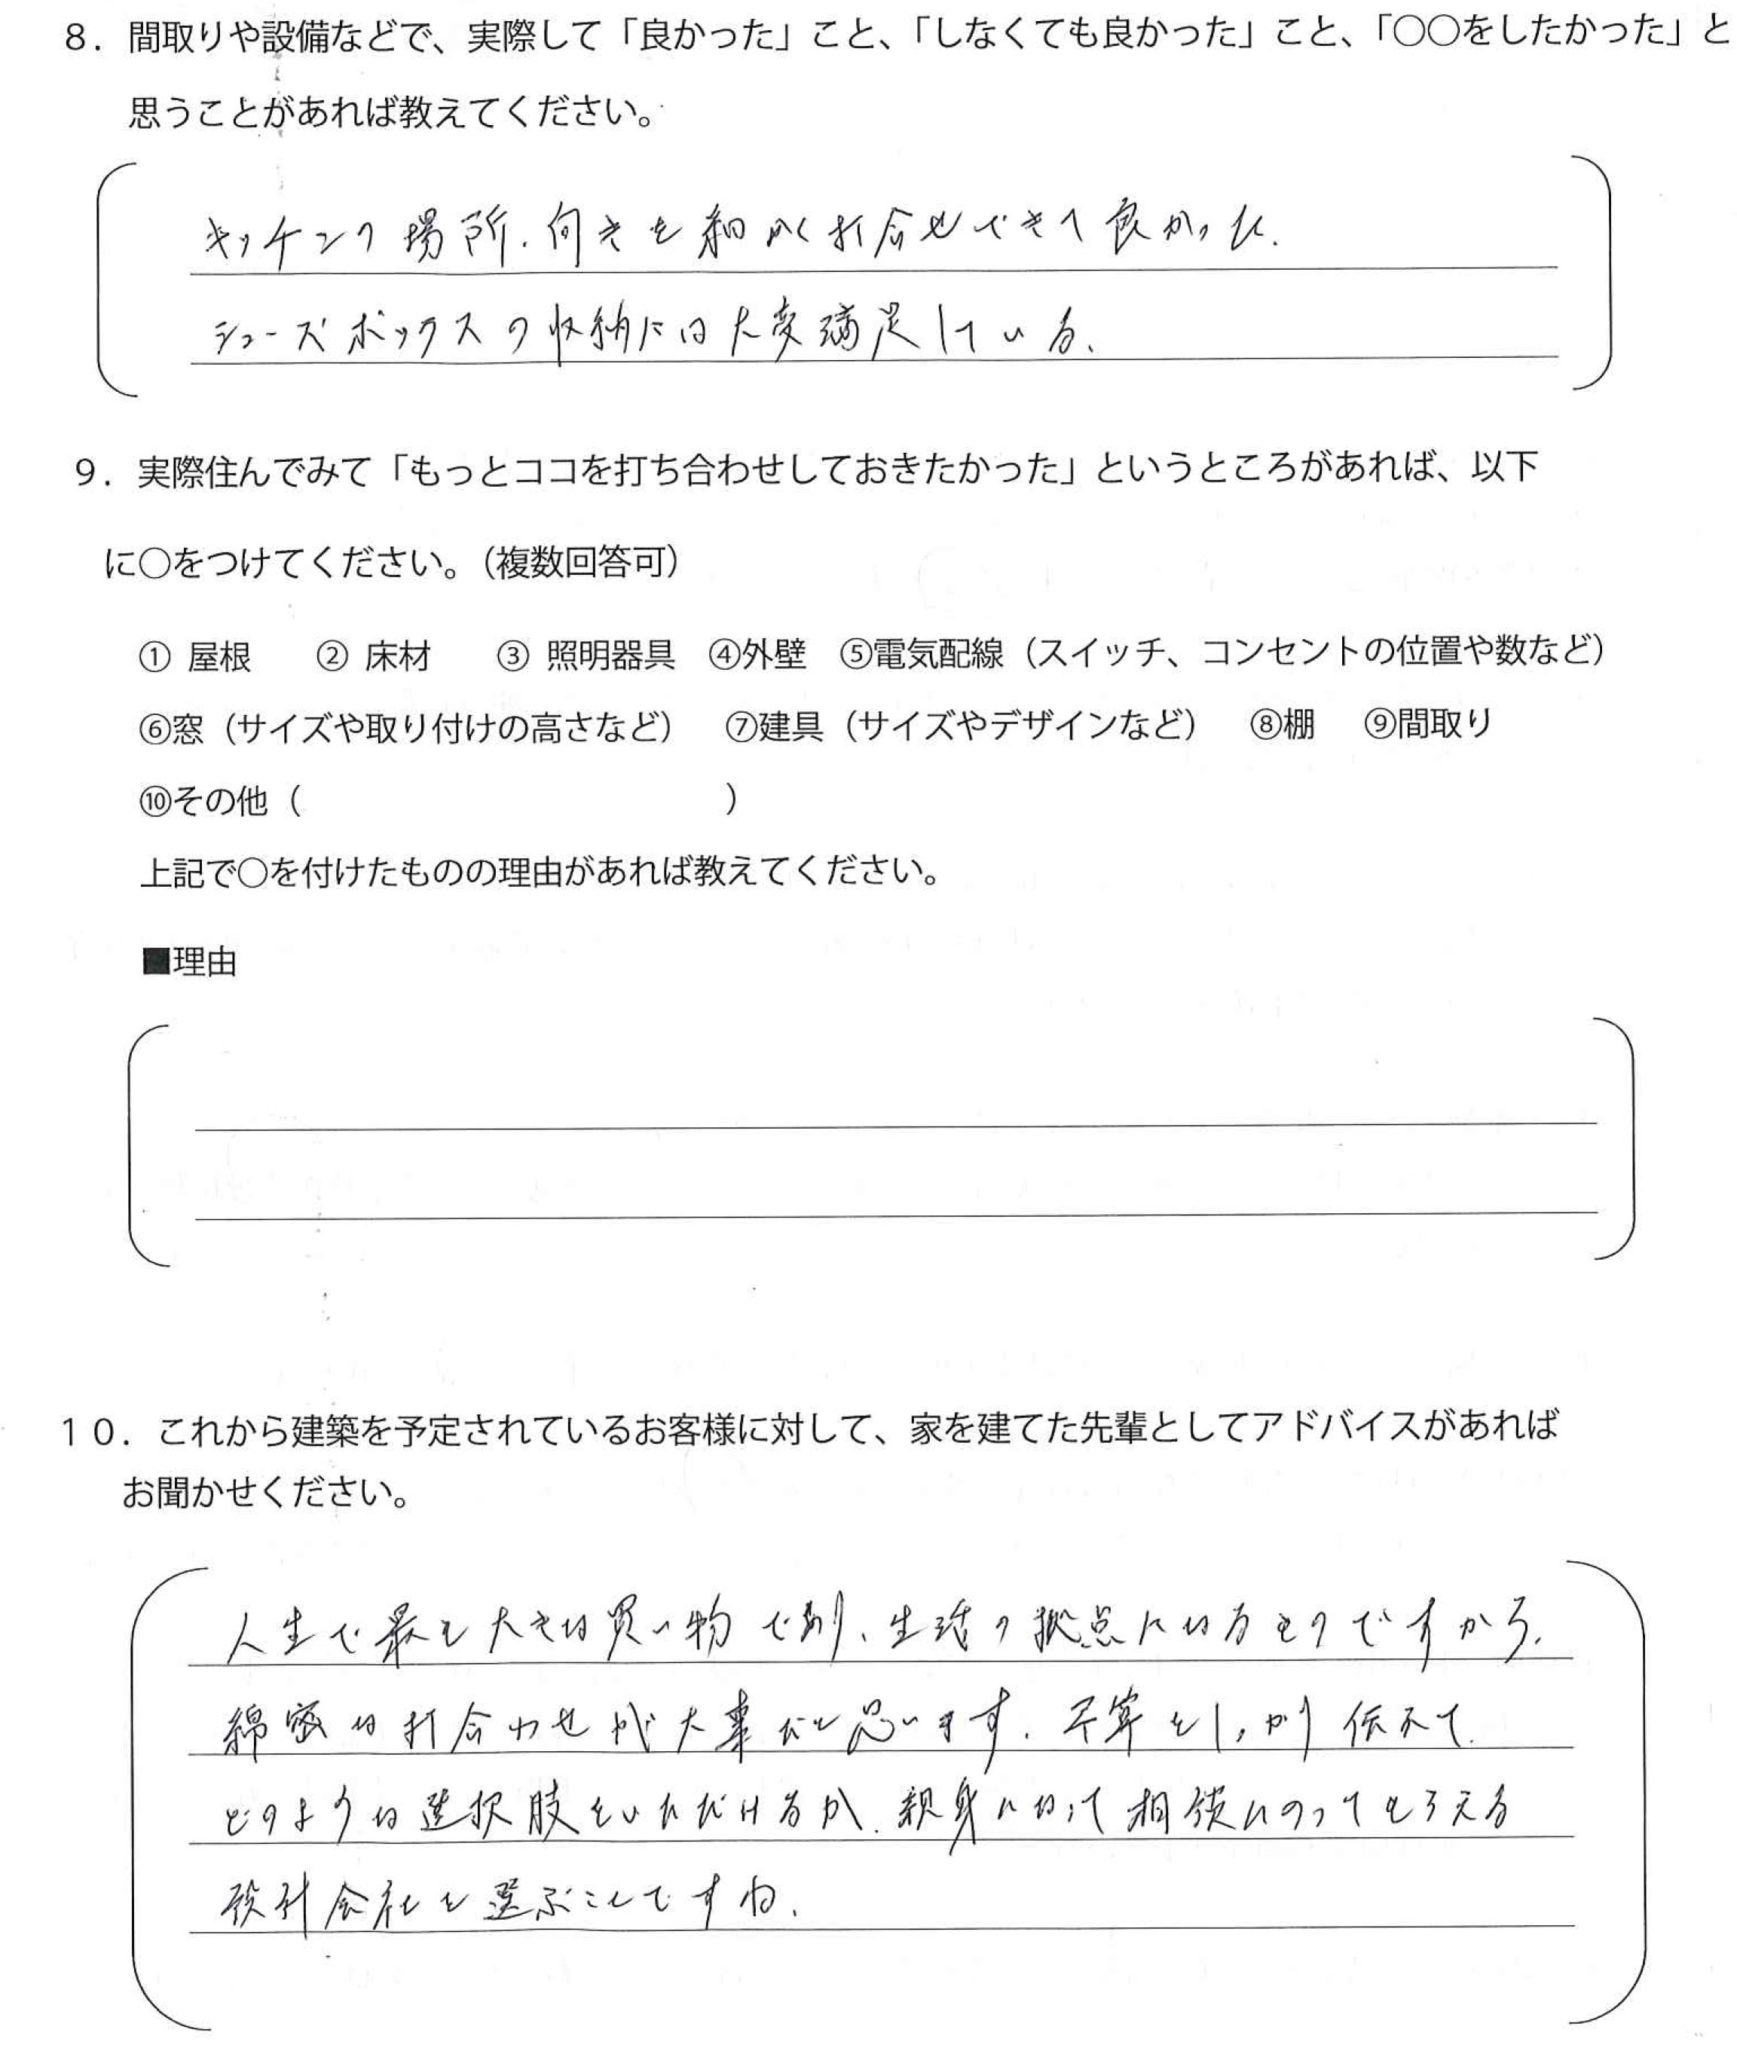 ８．間取りや設備などで、実際して「良かった」こと、「しなくても良かった」こと、「〇〇をしたかった」と
思うことがあれば教えてください。
キッチンの場所、向きを細かく打合せできて良かった。
シューズボックスの収納には大変満足している。
９．実際住んでみて「もっとココを打ち合わせしておきたかった」というところがあれば、以下
に〇をつけてください。（複数回答可）
① 屋根　② 床材　③ 照明器具　④外壁　⑤電気配線（スイッチ、コンセントの位置や数など）
⑥窓（サイズや取り付けの高さなど）　⑦建具（サイズやデザインなど）　⑧棚　⑨間取り
⑩その他（　　　　　　）
上記で〇を付けたものの理由があれば教えてください。
■理由
１０．これから建築を予定されているお客様に対して、家を建てた先輩としてアドバイスがあれば
お聞かせください。
人生で最も大きな買い物であり、生活の拠点になるものですから、
綿密な打合わせが大事だと思います。予算をしっかり伝えて、
どのような選択肢をいただけるか、親身になって相談にのってもらえる
設計会社を選ぶことですね。